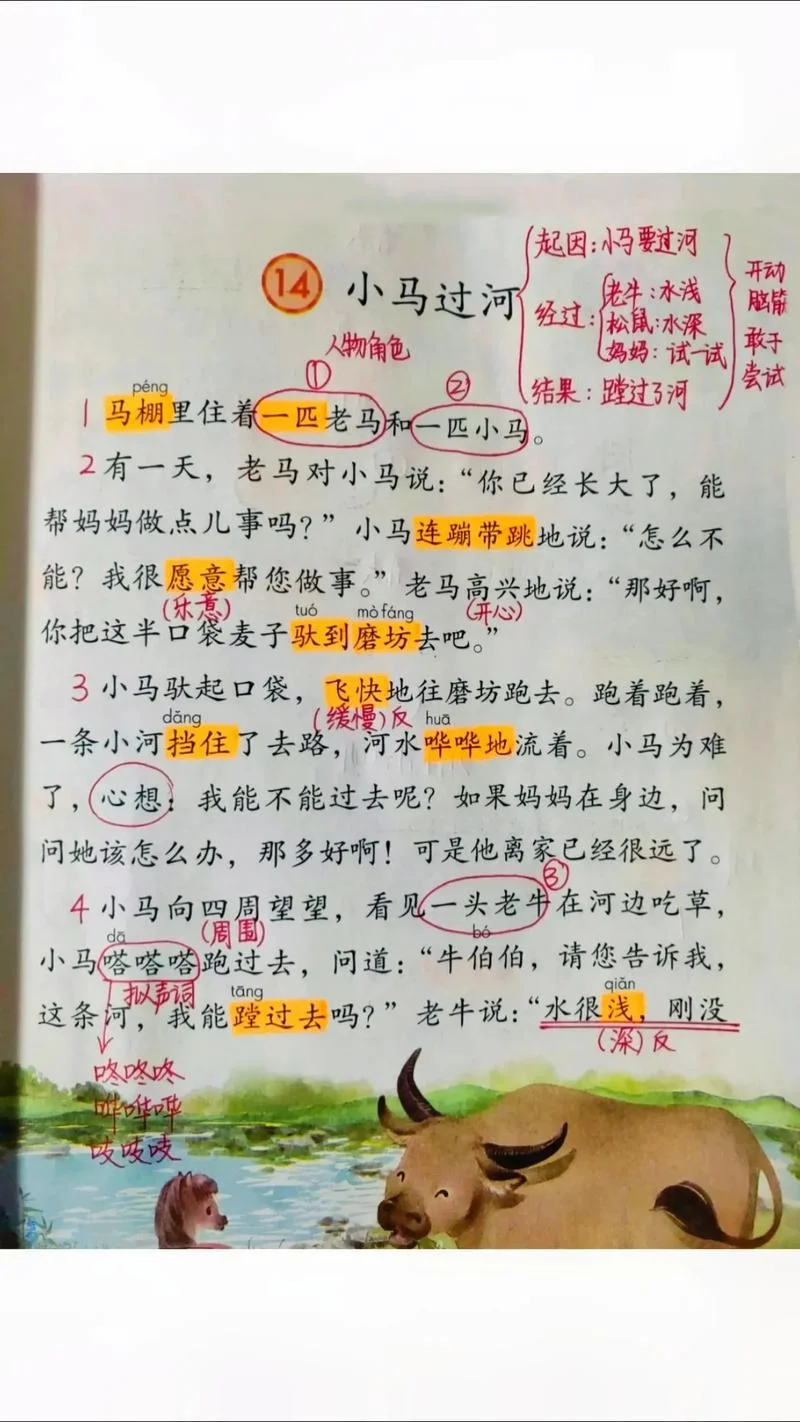 14 小马过河
起因：小马要过河
经过：
老牛：水浅
松鼠：水深
妈妈：试一试
结果：蹚过了河
开动
脑筋
敢于
尝试
人物角色
① ②
péng
1 马棚里住着一匹老马和一匹小马。
2 有一天，老马对小马说：“你已经长大了，能
帮妈妈做点儿事吗？”小马连蹦带跳地说：“怎么不
能？我很愿意帮您做事。”老马高兴地说：“那好啊，
(乐意) tuó mò fáng (开心)
你把这半口袋麦子驮到磨坊去吧。”
3 小马驮起口袋，飞快地往磨坊跑去。跑着跑着，
dǎng (缓慢)反 huā
一条小河挡住了去路，河水哗哗地流着。小马为难
了，心想：我能不能过去呢？如果妈妈在身边，问
问她该怎么办，那多好啊！可是他离家已经很远了。
③
4 小马向四周望望，看见一头老牛在河边吃草，
dā (周围) bó
小马嗒嗒嗒跑过去，问道：“牛伯伯，请您告诉我，
拟声词 tāng qiǎn
这条河，我能蹚过去吗？”老牛说：“水很浅，刚没
(深)反
咚咚咚
哗哗哗
吱吱吱